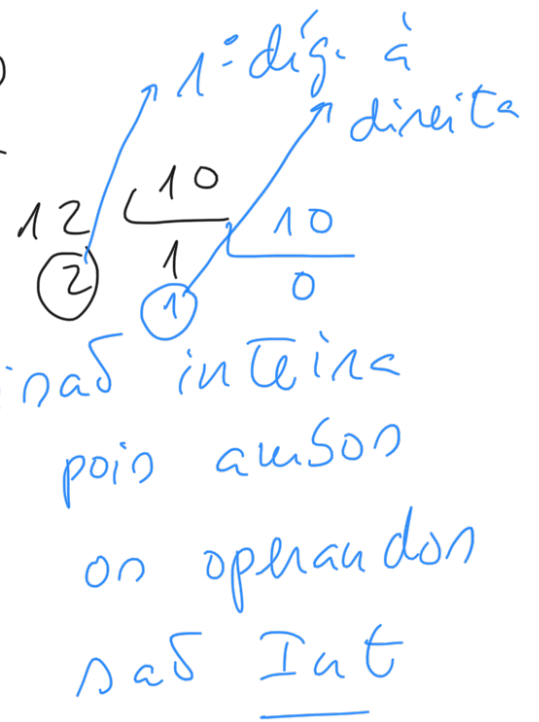 1º díg. à
direita
12 10
2 1 10
1 0
isão inteira
pois ambos
os operandos
são Int